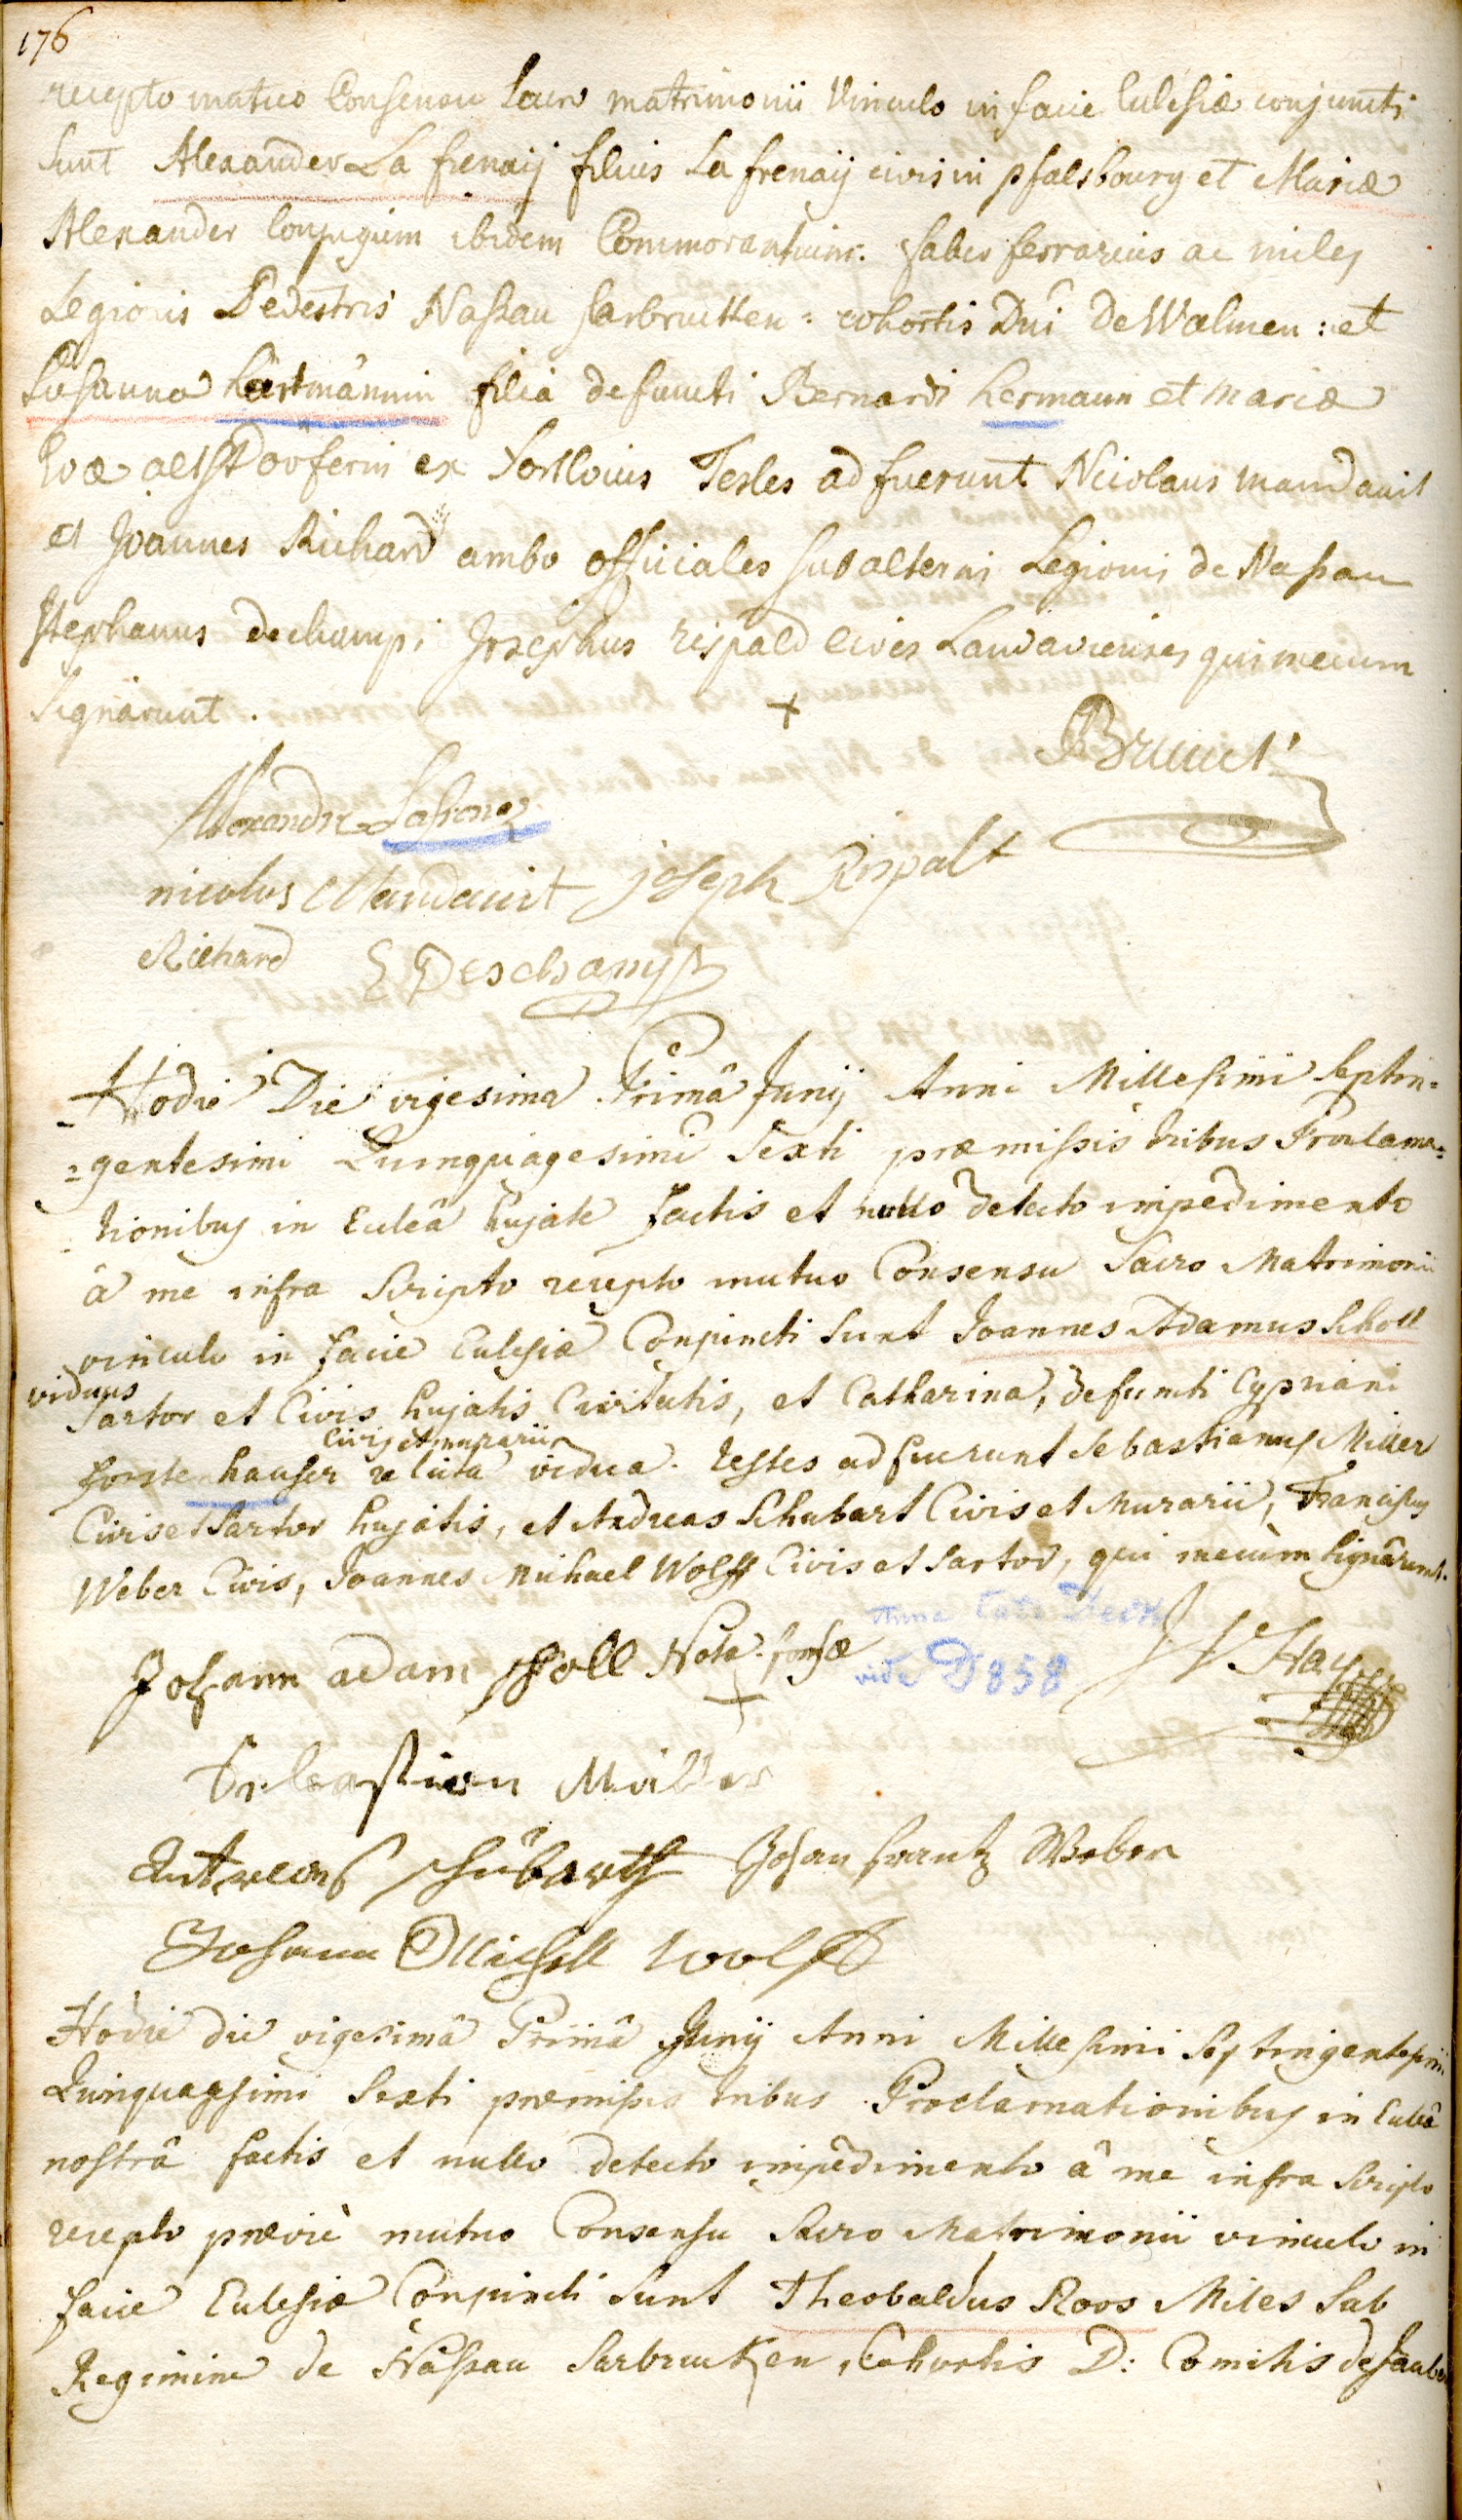 176
recepto mutuo Consensu Sacro matrimonii Vinculo in facie Ecclesiæ conjuncti
sunt Alexander La frenaÿ filius La frenaÿ civis in pfalsbourg et Mariæ
Alexander Conjugum ibidem Commorantium. faber ferrarius ac miles
Legionis Pedestris Nassau sarbrucken: cohortis Dni de Walmen: et
Susanna hartmännin filia defuncti Bernardi hermann et Mariæ
Evæ ex fortlouis Testes adfuerunt Nicolaus mandauit
et Joannes Richard ambo officiales subalterni Legionis de Nassau
Stephanus dechamp; Josephus rispald cives Landavienses qui mecum
signarunt.
+ Brunet
Alexandre Lafrenez
nicolas Mandauit joseph Rispalt
Richard E Deschamps
Hodie Die vigesima Primâ Junÿ Anni Millesimi Septin=
=gentesimi Quinquagesimi Sexti præmissis tribus Proclama=
=tionibus in Eccleâ hujate factis et nullo detecto impedimento
â me infra Scripto recepto mutuo Consensu Sacro Matrimonii
vinculo in facie Eclesiæ Conjuncti sunt Joannes Adamus Scholl
viduus
Sartor et Civis hujatis Civitatis, et Catharina, defuncti Cypriani
Civis et murarii
forstenhauser relicta vidua. Testes adfuerunt Sebastianus Miller
Civis et Sartor hujatis, et Andreas Schubart Civis et Murarii, Franciscus
Weber Civis, Joannes Michael Wolff Civis et Sartor, qui mecùm signârunt.
Anna Cath
Johann adam scholl Nota sponsæ + vide D 858
Sebastian Müller
Antreas schübarth Johan frantz Weber
Johann Michell Wolff
Hodie die vigesimâ Primâ Junÿ Anni Millesimi Septingentesimi
Quinquagsimi Sexti præmissis tribus Proclamationibus in Eccleâ
nostrâ factis et nullo detecto impedimento â me infra Scripto
recepto præviè mutuo Consensu Sacro Matrimonii vinculo in
facie Eclesiæ Conjuncti sunt Theobaldus Roos Miles Sub
Regimine de Nassau Sarbrucken, Cohortis D: Comitis